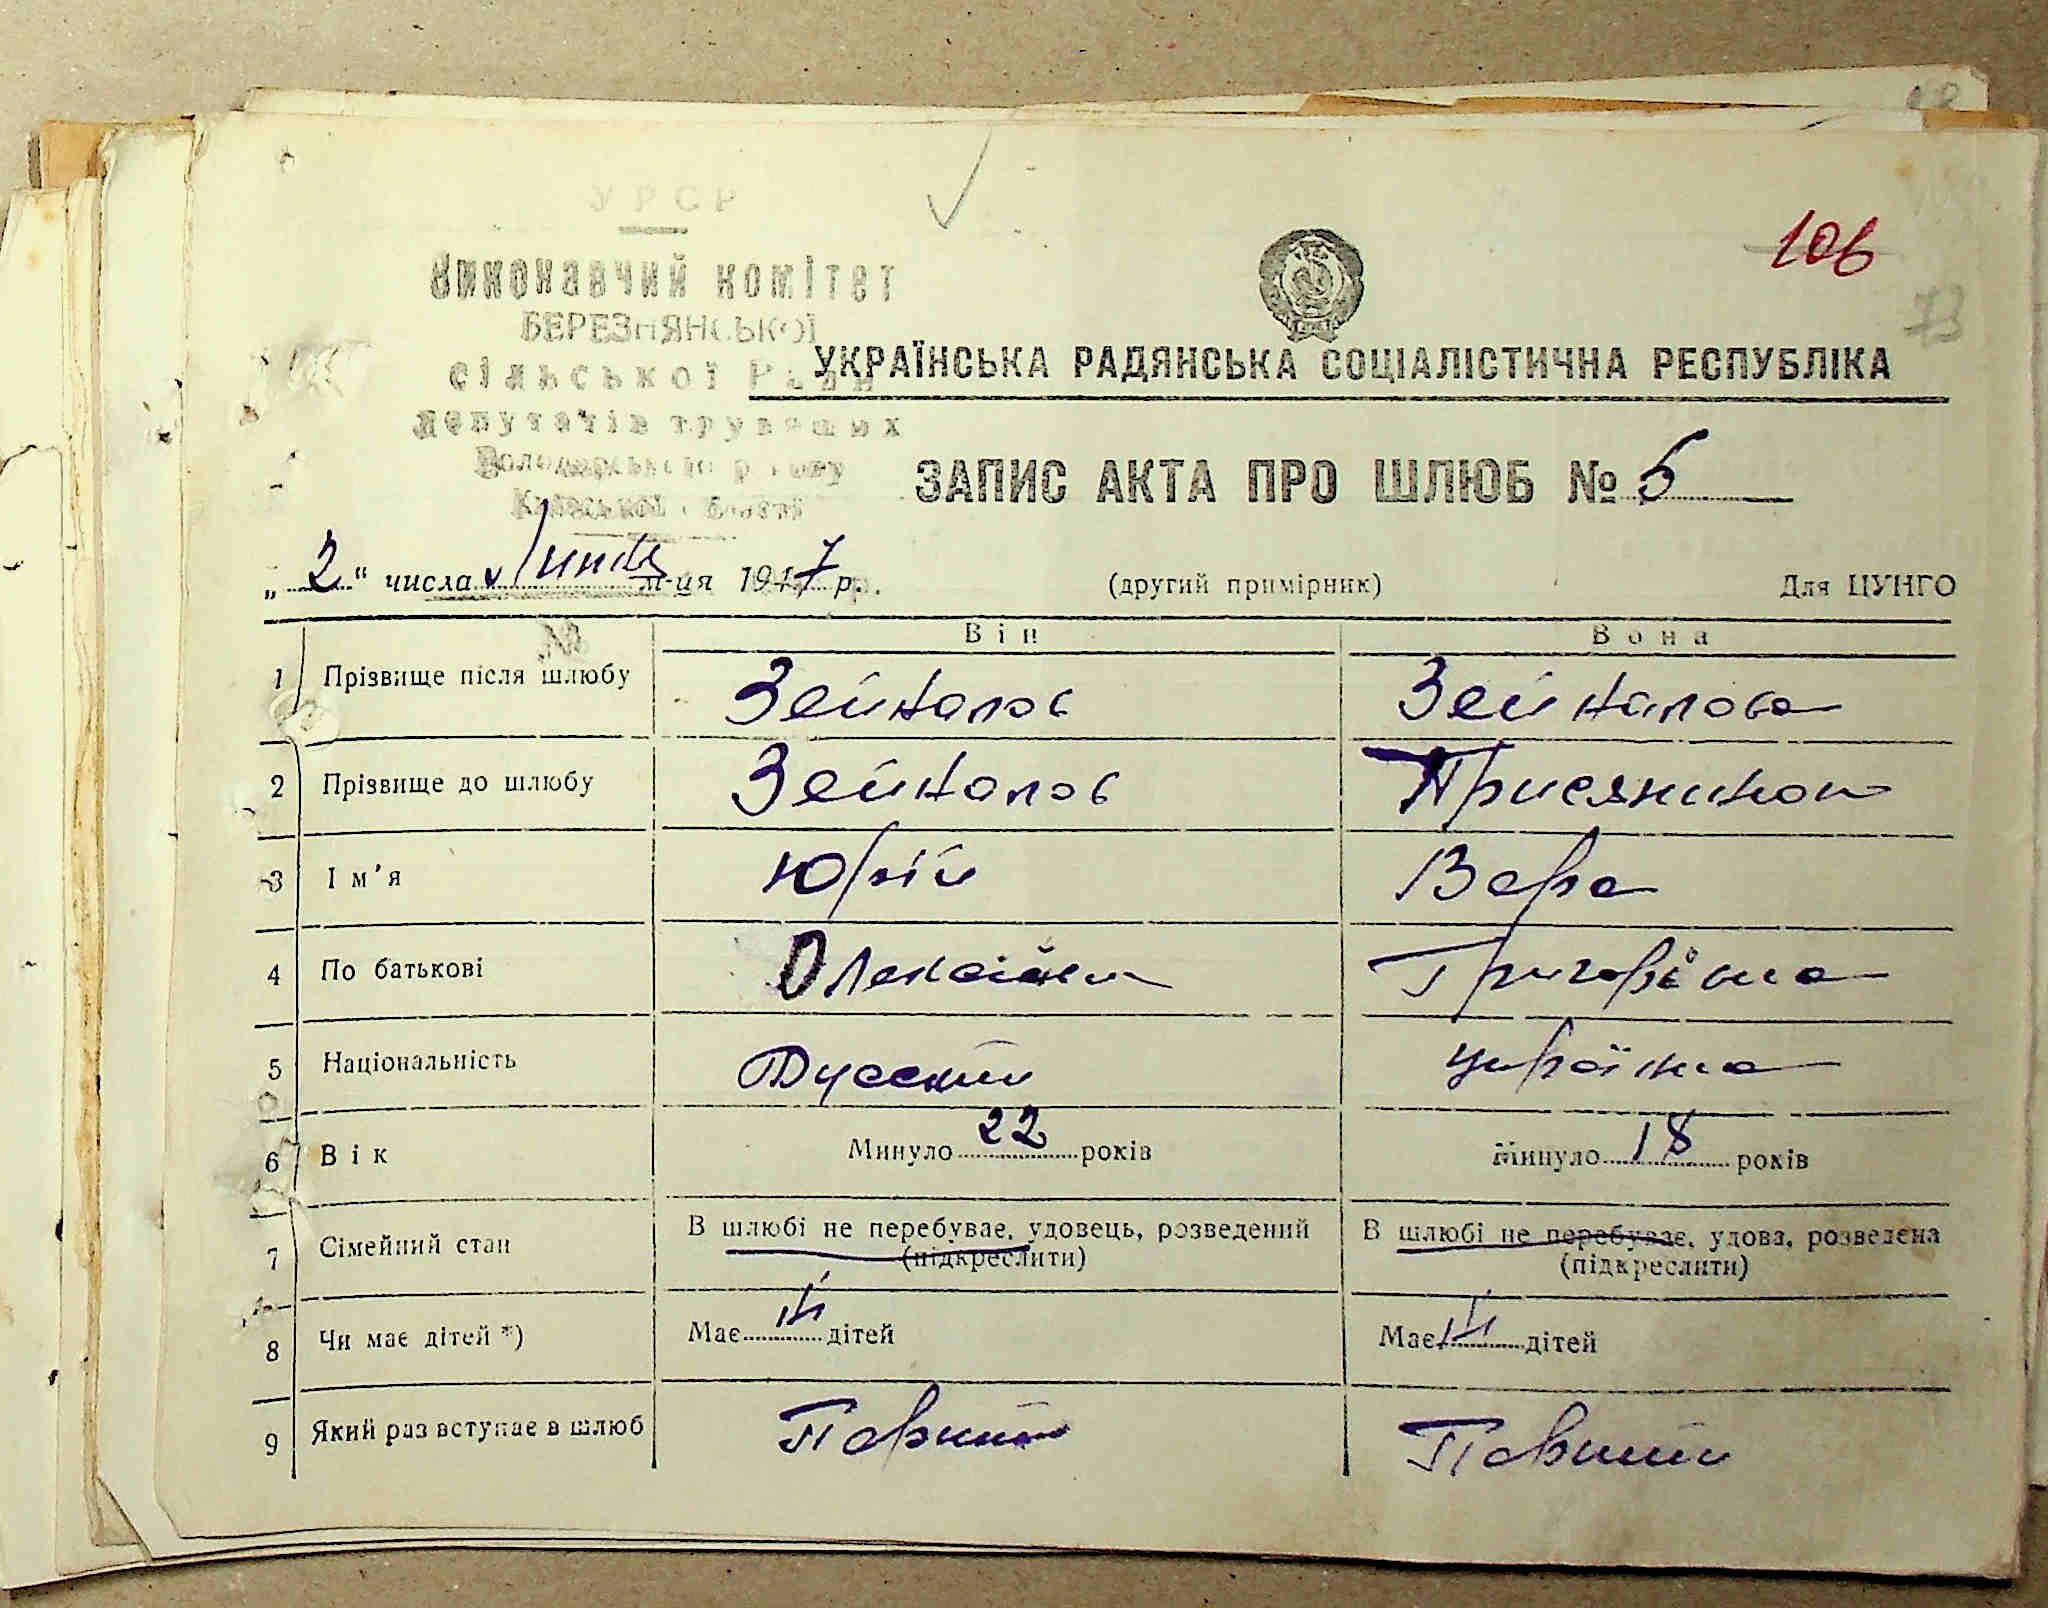 УРСР
Виконавчий комітет
БЕРЕЗНЯНСЬКОЇ
сільської Ради
депутатів трудящих
Володарського району
Київської області
106
73
УКРАЇНСЬКА РАДЯНСЬКА СОЦІАЛІСТИЧНА РЕСПУБЛІКА
ЗАПИС АКТА ПРО ШЛЮБ № 5
„ 2 “ числа Липня м-ця 1947 р. (другий примірник) Для ЦУНГО
Він Вона
1 Прізвище після шлюбу Зейналов Зейналова
2 Прізвище до шлюбу Зейналов
3 Ім’я Юрій Вера
4 По батькові
5 Національність Русский українка
6 Вік Минуло 22 років Минуло 18 років
7 Сімейний стан В шлюбі не перебуває, удовець, розведений В шлюбі не перебуває, удова, розведена
(підкреслити) (підкреслити)
8 Чи має дітей *) Має дітей Має дітей
9 Який раз вступає в шлюб Перший Перший